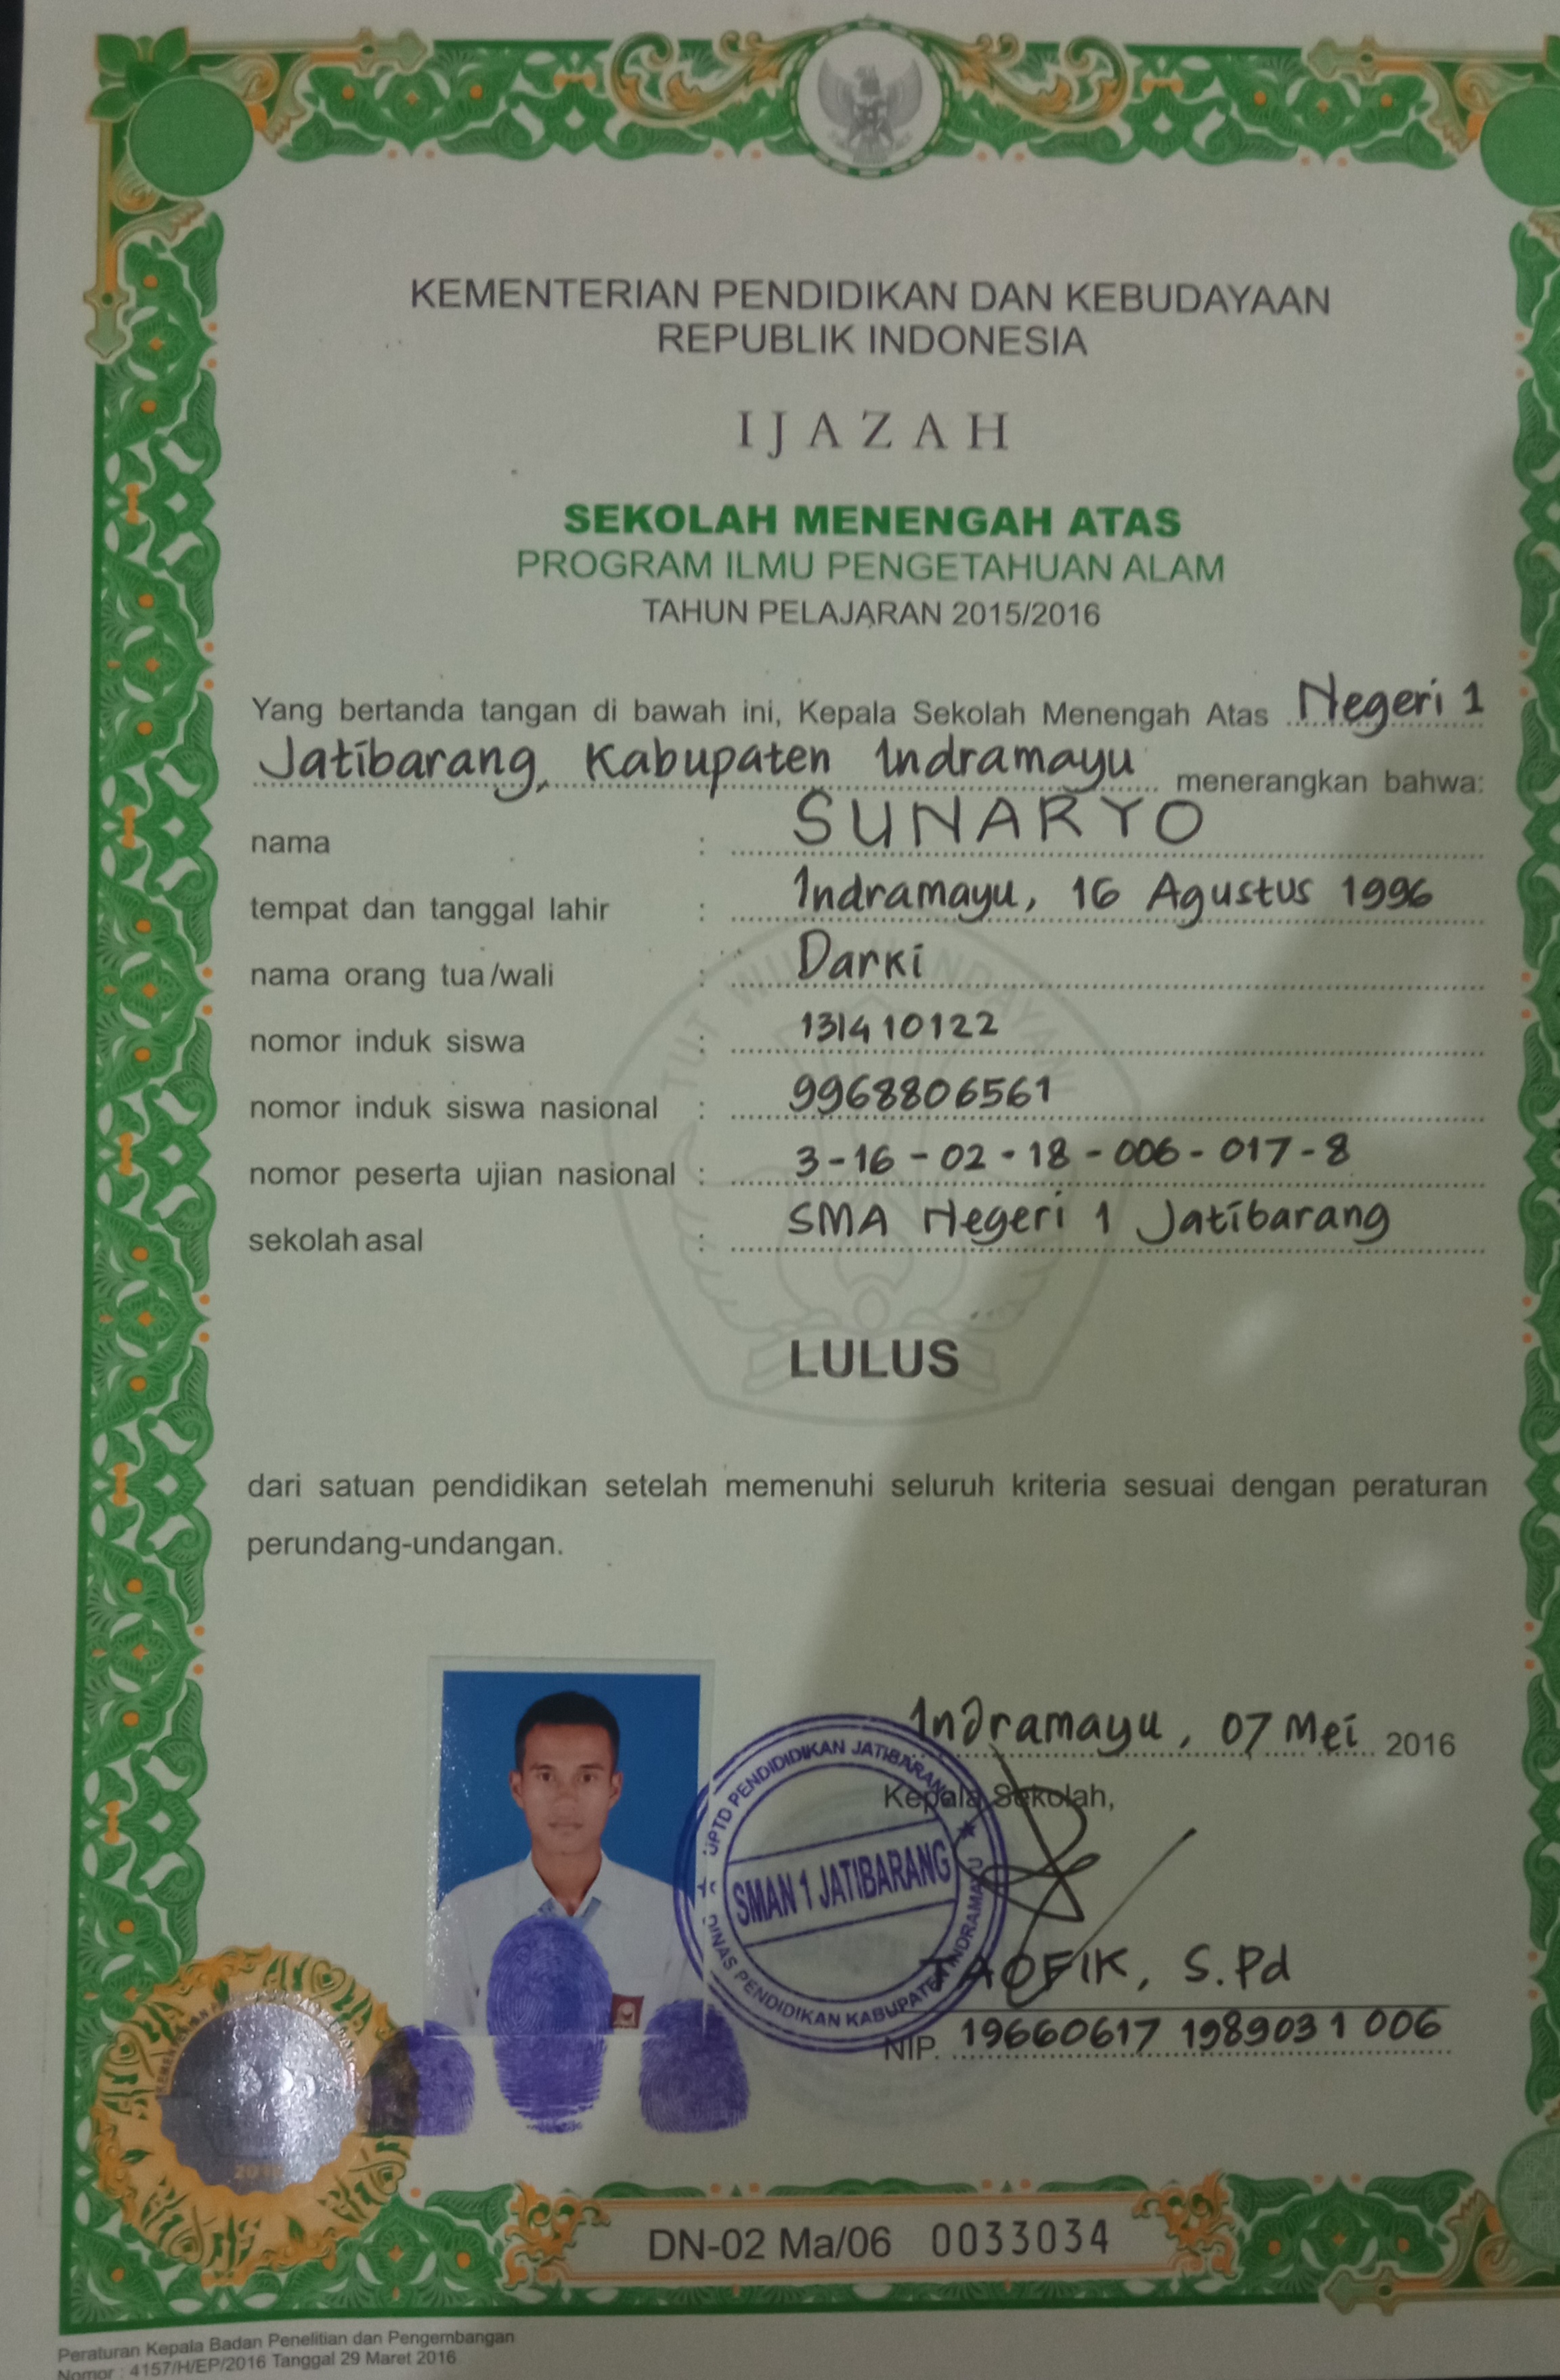 KEMENTERIAN PENDIDIKAN DAN KEBUDAYAAN
REPUBLIK INDONESIA
IJAZAH
SEKOLAH MENENGAH ATAS
PROGRAM ILMU PENGETAHUAN ALAM
TAHUN PELAJARAN 2015/2016
Yang bertanda tangan di bawah ini, Kepala Sekolah Menengah Atas Negeri 1
Jatibarang, Kabupaten Indramayu menerangkan bahwa:
nama : SUNARYO
tempat dan tanggal lahir : Indramayu, 16 Agustus 1996
nama orang tua/wali : Darki
nomor induk siswa : 131410122
nomor induk siswa nasional : 9968806561
nomor peserta ujian nasional : 3-16-02-18-006-017-8
sekolah asal : SMA Negeri 1 Jatibarang
TUT WURI HANDAYANI
LULUS
dari satuan pendidikan setelah memenuhi seluruh kriteria sesuai dengan peraturan
perundang-undangan.
Indramayu, 07 Mei 2016
Kepala Sekolah,
UPTD PENDIDIKAN JATIBARANG
SMAN 1 JATIBARANG
DINAS PENDIDIKAN KABUPATEN INDRAMAYU
TAOFIK, S.Pd
NIP. 19660617 198903 1 006
DN-02 Ma/06 0033034
Peraturan Kepala Badan Penelitian dan Pengembangan
Nomor : 4157/H/EP/2016 Tanggal 29 Maret 2016